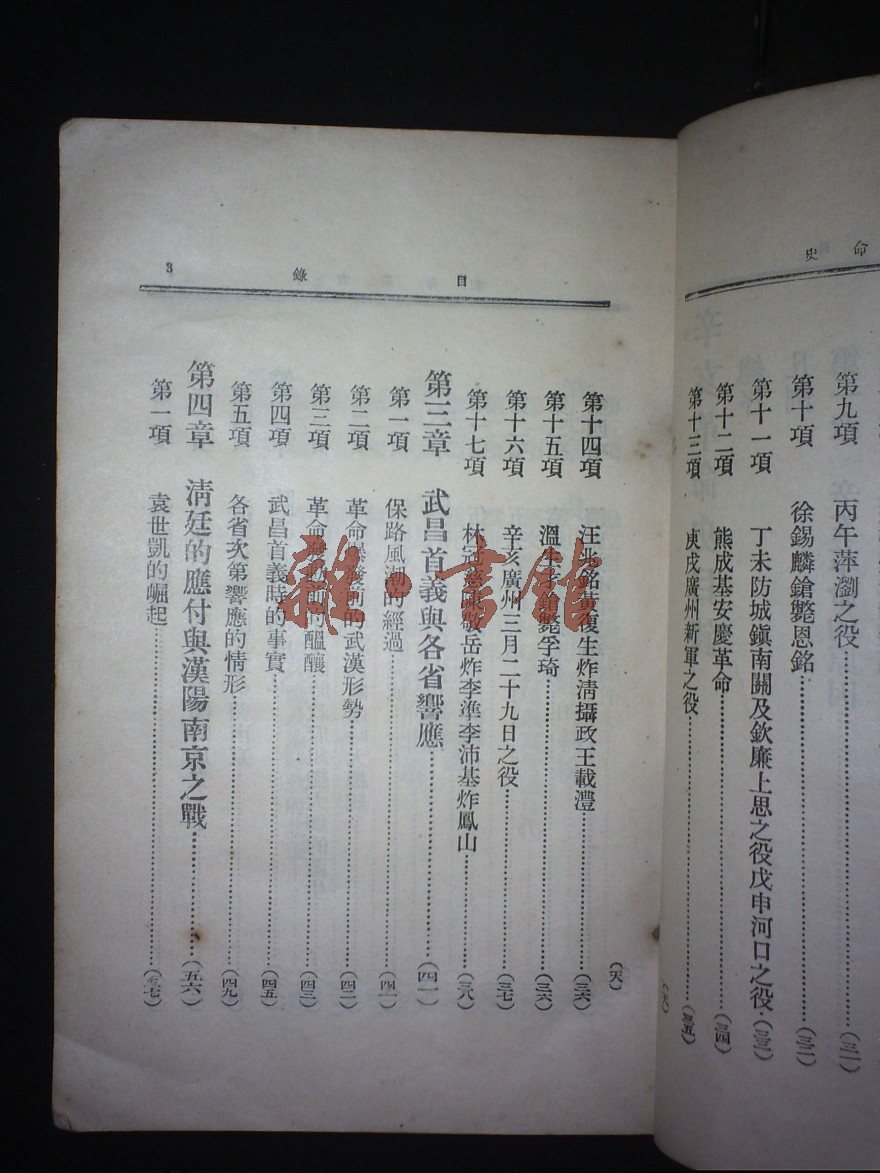 史 命
第九項 丙午萍瀏之役………(三一)
第十項 徐錫麟鎗斃恩銘………(三二)
第十一項 丁未防城鎭南關及欽廉上思之役戊申河口之役…(三三)
第十二項 熊成基安慶革命………(三四)
第十三項 庚戌廣州新軍之役………(三五)
目 錄 3
第十四項 汪兆銘黃復生炸淸攝政王載灃………(三六)
第十五項 溫生才鎗斃孚琦………(三六)
第十六項 辛亥廣州三月二十九日之役………(三七)
第十七項 林冠慈陳敬岳炸李準李沛基炸鳳山………(三八)
第三章 武昌首義與各省響應………(四一)
第一項 保路風潮的經過………(四一)
第二項 革命爆發前的武漢形勢………(四二)
第三項 革命發動前的醞釀………(四三)
第四項 武昌首義時的事實………(四五)
第五項 各省次第響應的情形………(四九)
第四章 淸廷的應付與漢陽南京之戰………(五六)
第一項 袁世凱的崛起………(五七)
雜·書館